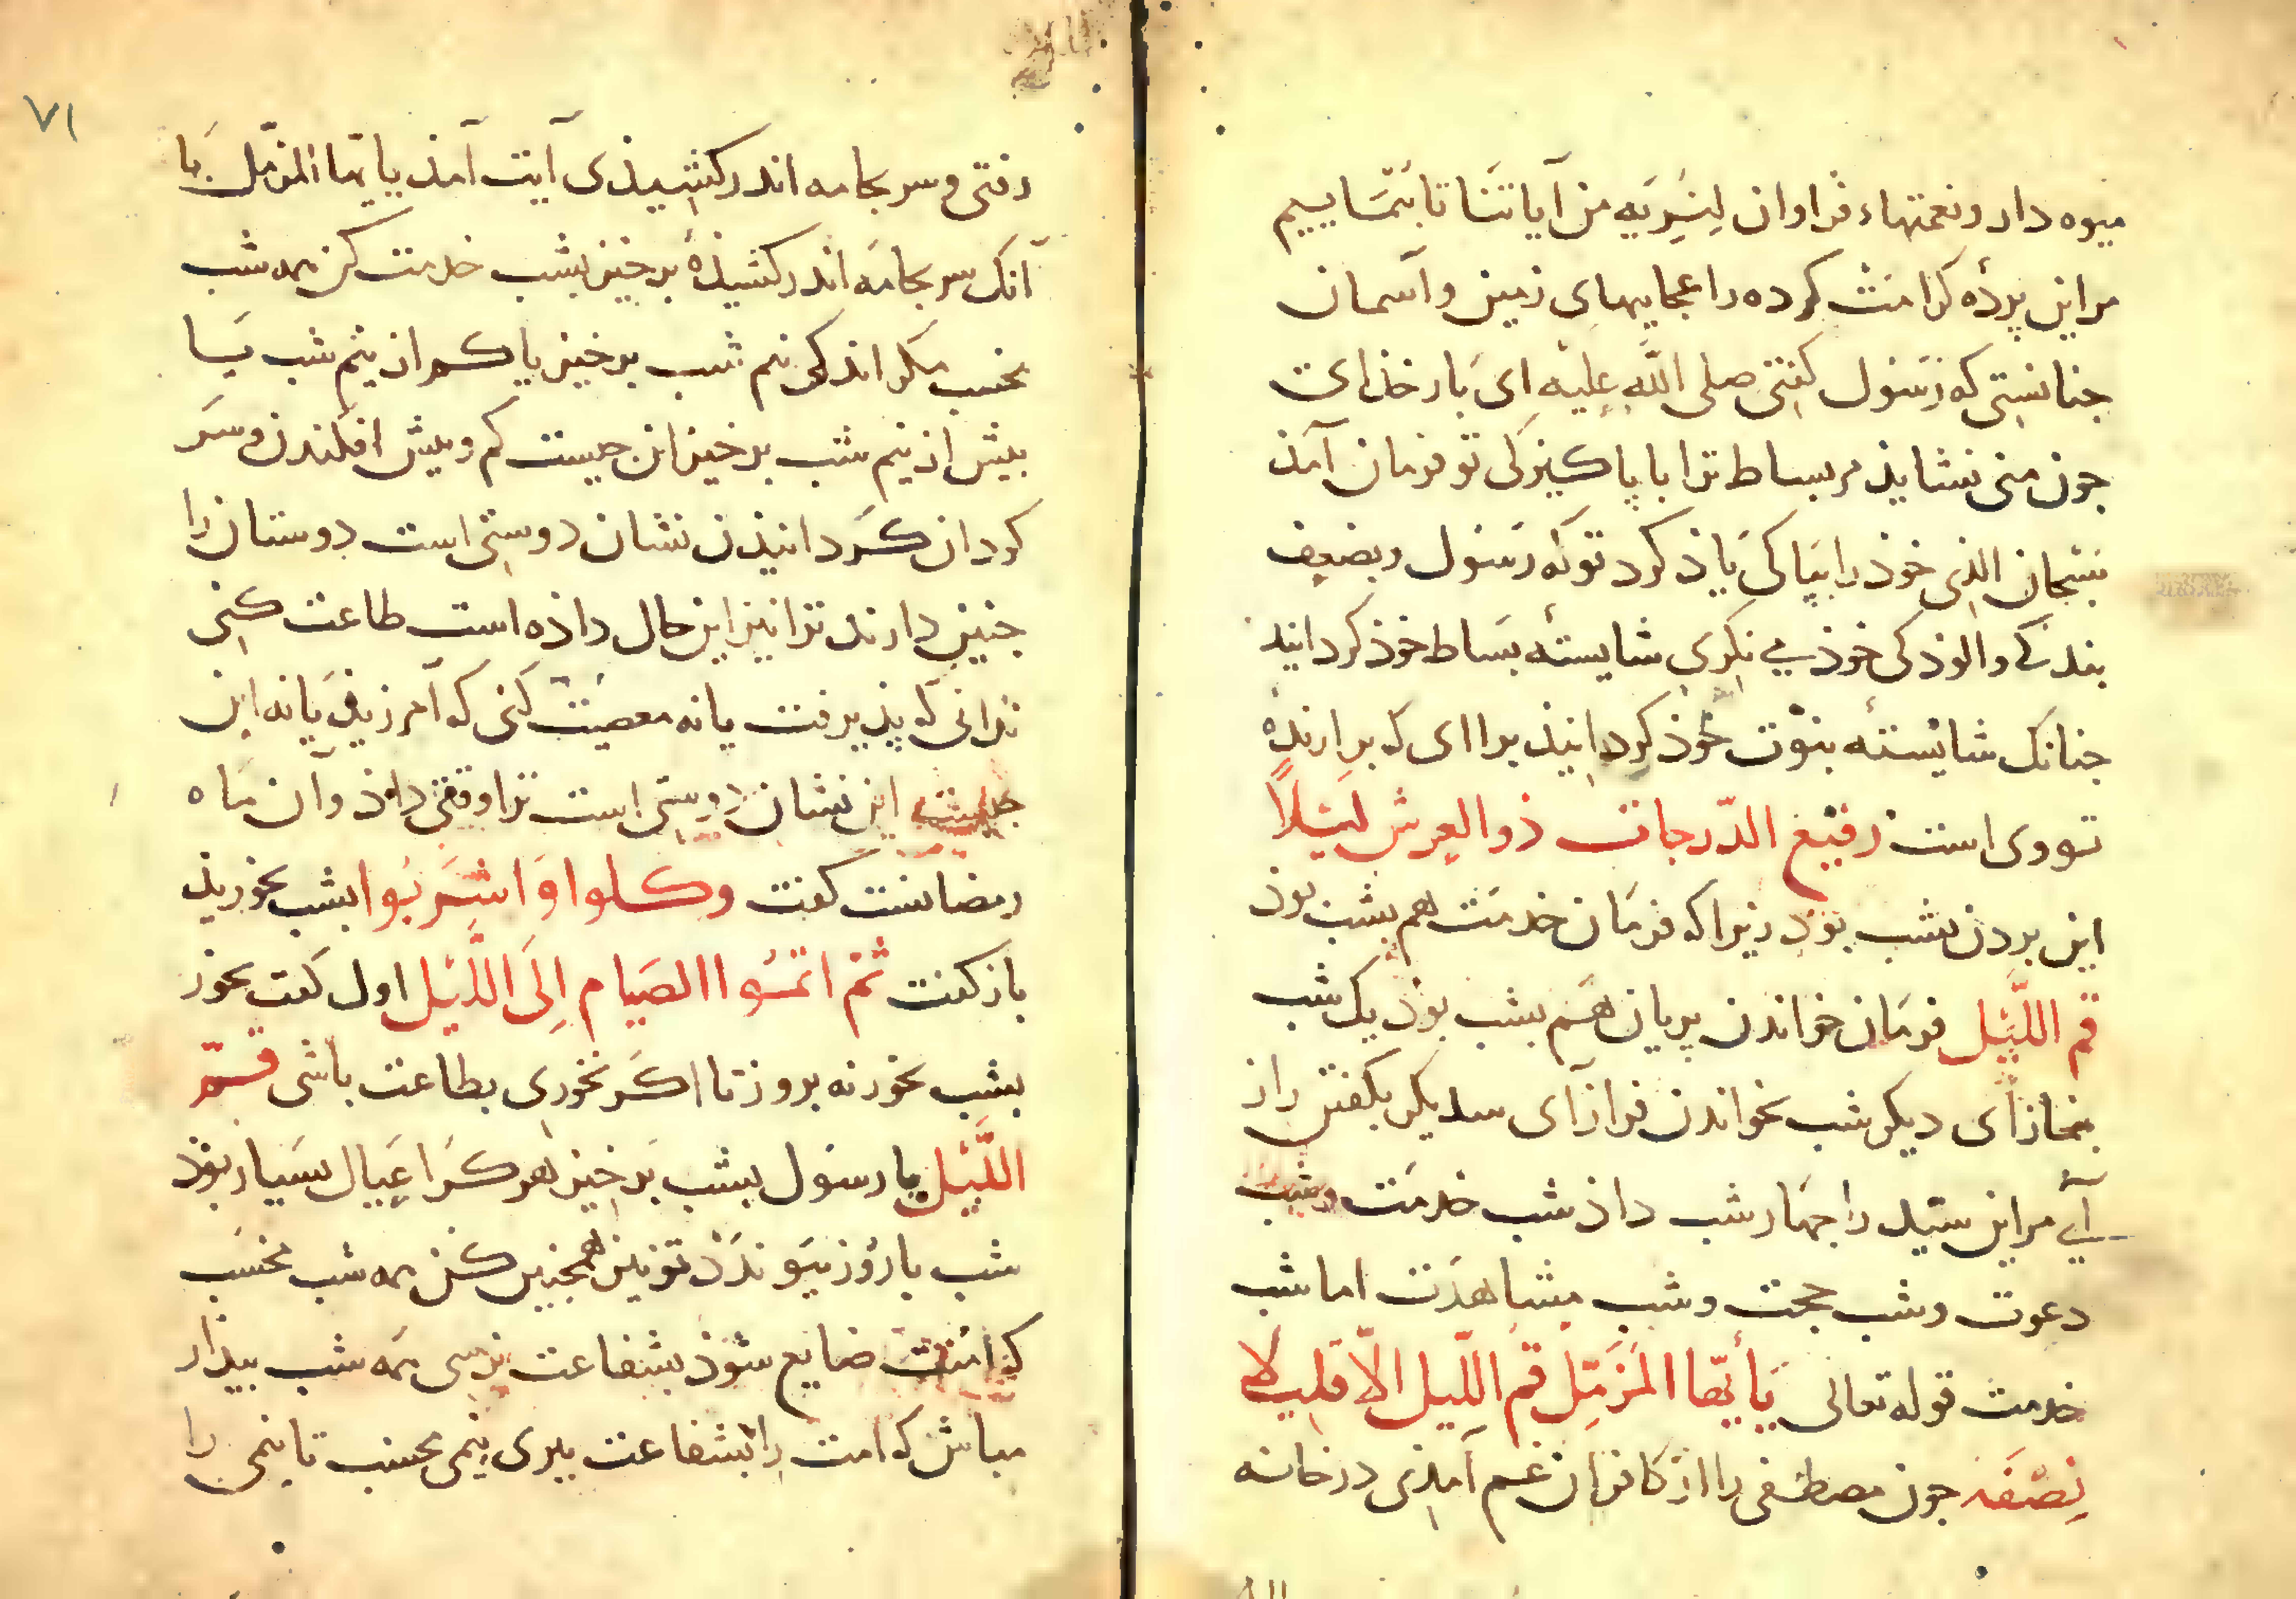 میوه دار و نعمتهاء فراوان لِنُرِیَه من آیاتنا تا بنماییم
مر این بردهٔ کرامت کرده را عجایبهای زمین و آسمان
جنانستی که رسول کفتی صلی الله علیه ای بار خذای
جون منی نشایذ مر بساط ترا با پاکیزکی تو فرمان آمذ
سبحان الذی خوذ را بپاکی یاذ کرد تو که رسول و بضعیف
بندکی و الوذکی خوذ می نکری شایستهٔ بساط خوذ کردانید
جنانک شایستهٔ نبوّت خوذ کردانیذ براای که برارندهٔ
تو وی است رفیع الدّرجات ذو العرش لَیلًا
این بردن بشب بوذ زیرا که فرمان خدمت هم بشب بوذ
قم اللَّیل فرمان خواندن پریان هم بشب بوذ یک شب
بنماز آی دیکر شب بخواندن فراز آی سدیکر بکفتن راز
آی مر این سیّد را جهار شب داذ شب خدمت و شب
دعوت و شب حجت و شب مشاهدت اما شب
خدمت قوله تعالی یَا أیّها المزّمّل قم اللّیل الّا قلیلا
نِصْفَه جون مصطفی را از کافران غم آمذی در خانه
۷۱
رفتی و سر بجامه اندر کشیذی آیت آمذ یا ایّها المزّمّل یا
آنک سر بجامه اندر کشیذهٔ برخیز بشب خدمت کن همه شب
بخسب مکر اندکی نیم شب برخیز یا کم از نیم شب یا
بیش از نیم شب برخیز این جیست کم و بیش افکندن و سر
کردان کردانیذن نشان دوستی است دوستان را
جنین دارند ترا نیز این حال داذه است طاعت کنی
ندانی که پذیرفت یا نه معصیت کنی که آمرزیذ یا نه این
جیست این نشان دوستی است ترا وقتی داذ و آن ماه
رمضانست کفت وکلوا وَاشرَبُوا بشب بخوریذ
باز کفت ثمّ اتمّوا الصیام اِلَی اللَّیل اول کفت بخور
بشب بخور نه بروز تا اکر نخوری بطاعت باشی قم
اللَّیل یا رسول بشب برخیز هر کرا عیال بسیار بوذ
شب با روز پیوندذ تو نیز همجنین کن همه شب مخسب
که امّت ضایع شوذ بشفاعت نرسی همه شب بیدار
مباش که امت را بشفاعت ببری نیمی بخسب تا نیمی را